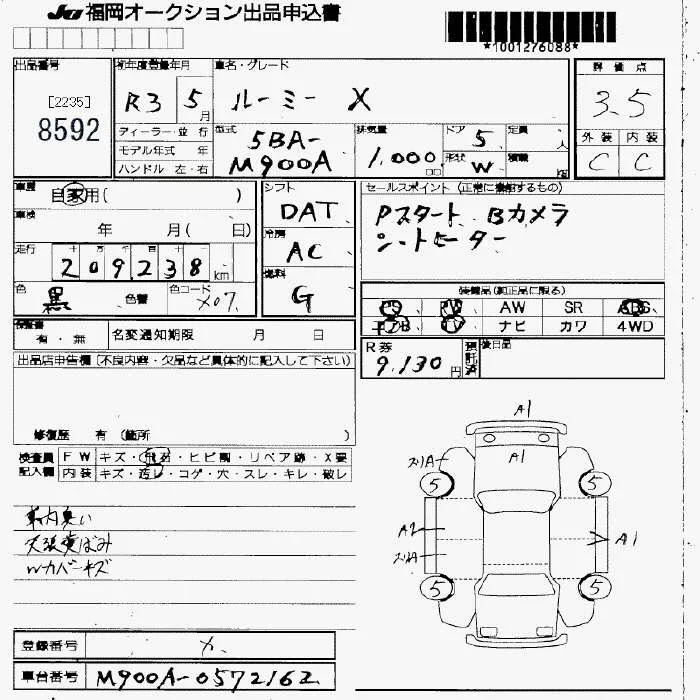 JU 福岡オークション出品申込書
*1001276088*
出品番号
[2235]
8592
初年度登録年月
R3 5月
車名・グレード
ルーミー X
評価点
3.5
外装 内装
C C
ディーラー・並行
モデル年式 年
ハンドル 左・右
型式
5BA-
M900A
排気量
1,000
cc
ドア 5
形状 W
定員 人
積載 kg
車歴
自家用( )
車検
年 月( 日)
走行
209,238 km
色
黒
色替
色コード
X07
シフト
DAT
冷房
AC
燃料
G
セールスポイント (正常に機能するもの)
Pスタート Bカメラ
シートヒーター
装備品(純正品に限る)
PS PW AW SR ABS
エアB TV ナビ カワ 4WD
検査書
有・無
名変通知期限 月 日
R券
9,130円
預託済
後日品
出品店申告欄(不良内容・欠品など具体的に記入して下さい)
修復歴 有 (箇所 )
検査員
記入欄
FW キズ・飛石・ヒビ割・リペア跡・X要
内装 キズ・汚レ・コゲ・穴・スレ・キレ・破レ
車内臭い
天張黄ばみ
Wカバーキズ
A1
A1
スリA
5 5
A2
スリA
A1
5 5
登録番号
車台番号 M900A-0572162